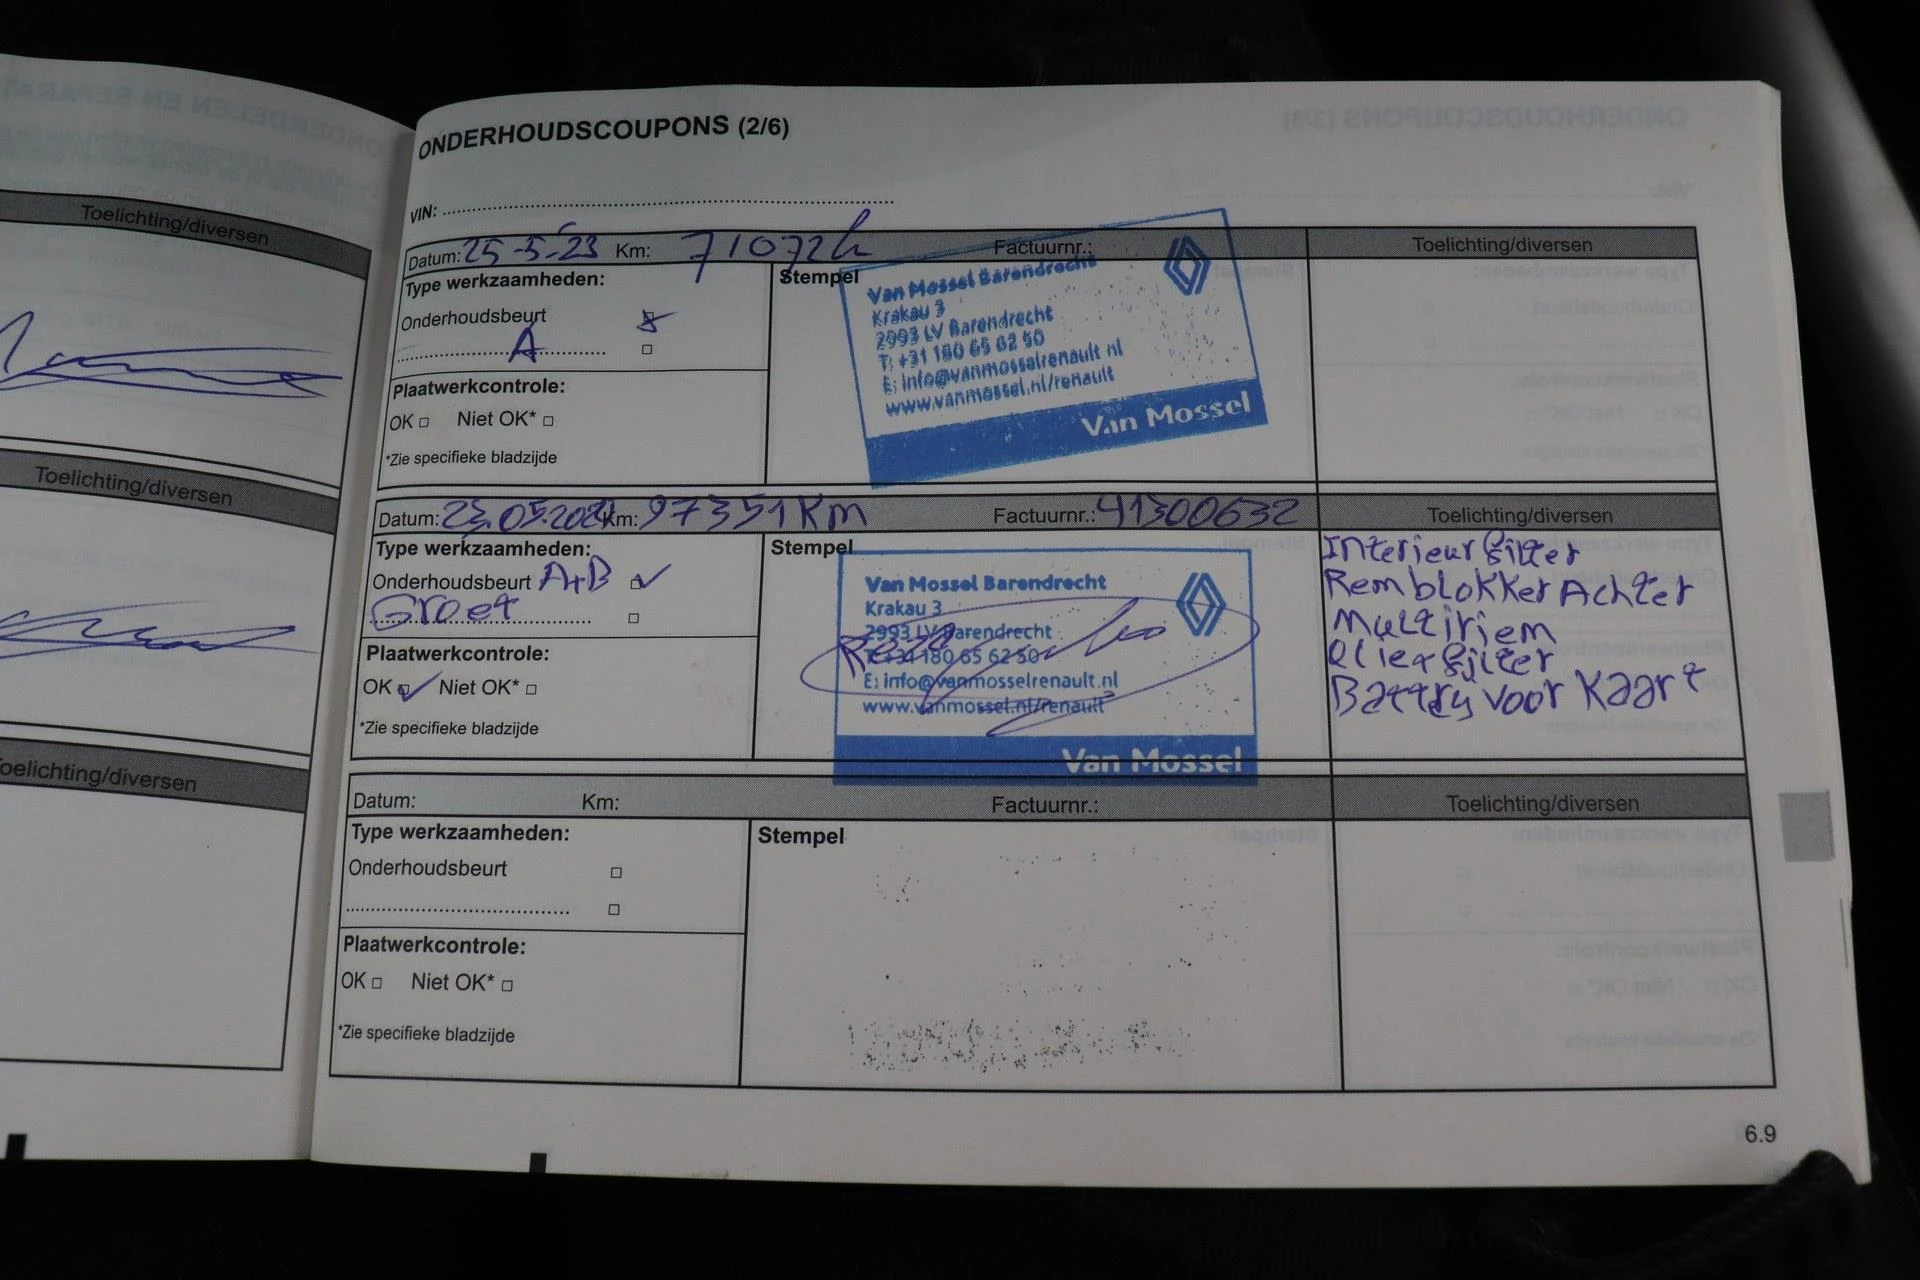 Toelichting/diversen
Toelichting/diversen
Toelichting/diversen
ONDERHOUDSCOUPONS (2/6)
VIN:
Datum: 25-5-23 Km: 71072 Factuurnr.: Toelichting/diversen
Type werkzaamheden:
Stempel
Onderhoudsbeurt
A
Plaatwerkcontrole:
OK □ Niet OK* □
*Zie specifieke bladzijde
Van Mossel Barendrecht
Krakau 3
2993 LV Barendrecht
T: +31 180 65 62 50
E: info@vanmosselrenault.nl
www.vanmossel.nl/renault
Van Mossel
Datum: 23.05.202 Km: 97351 Km Factuurnr.: 41300632 Toelichting/diversen
Type werkzaamheden:
Stempel
Onderhoudsbeurt A+B
Groet
Plaatwerkcontrole:
OK Niet OK* □
*Zie specifieke bladzijde
Van Mossel Barendrecht
Krakau 3
2993 LV Barendrecht
T: +31 180 65 62 50
E: info@vanmosselrenault.nl
www.vanmossel.nl/renault
Van Mossel
Interieurfilter
Remblokker Achter
Multiriem
Oliefilter
Battery voor Kaart
Datum: Km: Factuurnr.: Toelichting/diversen
Type werkzaamheden:
Stempel
Onderhoudsbeurt □
□
Plaatwerkcontrole:
OK □ Niet OK* □
*Zie specifieke bladzijde
6.9